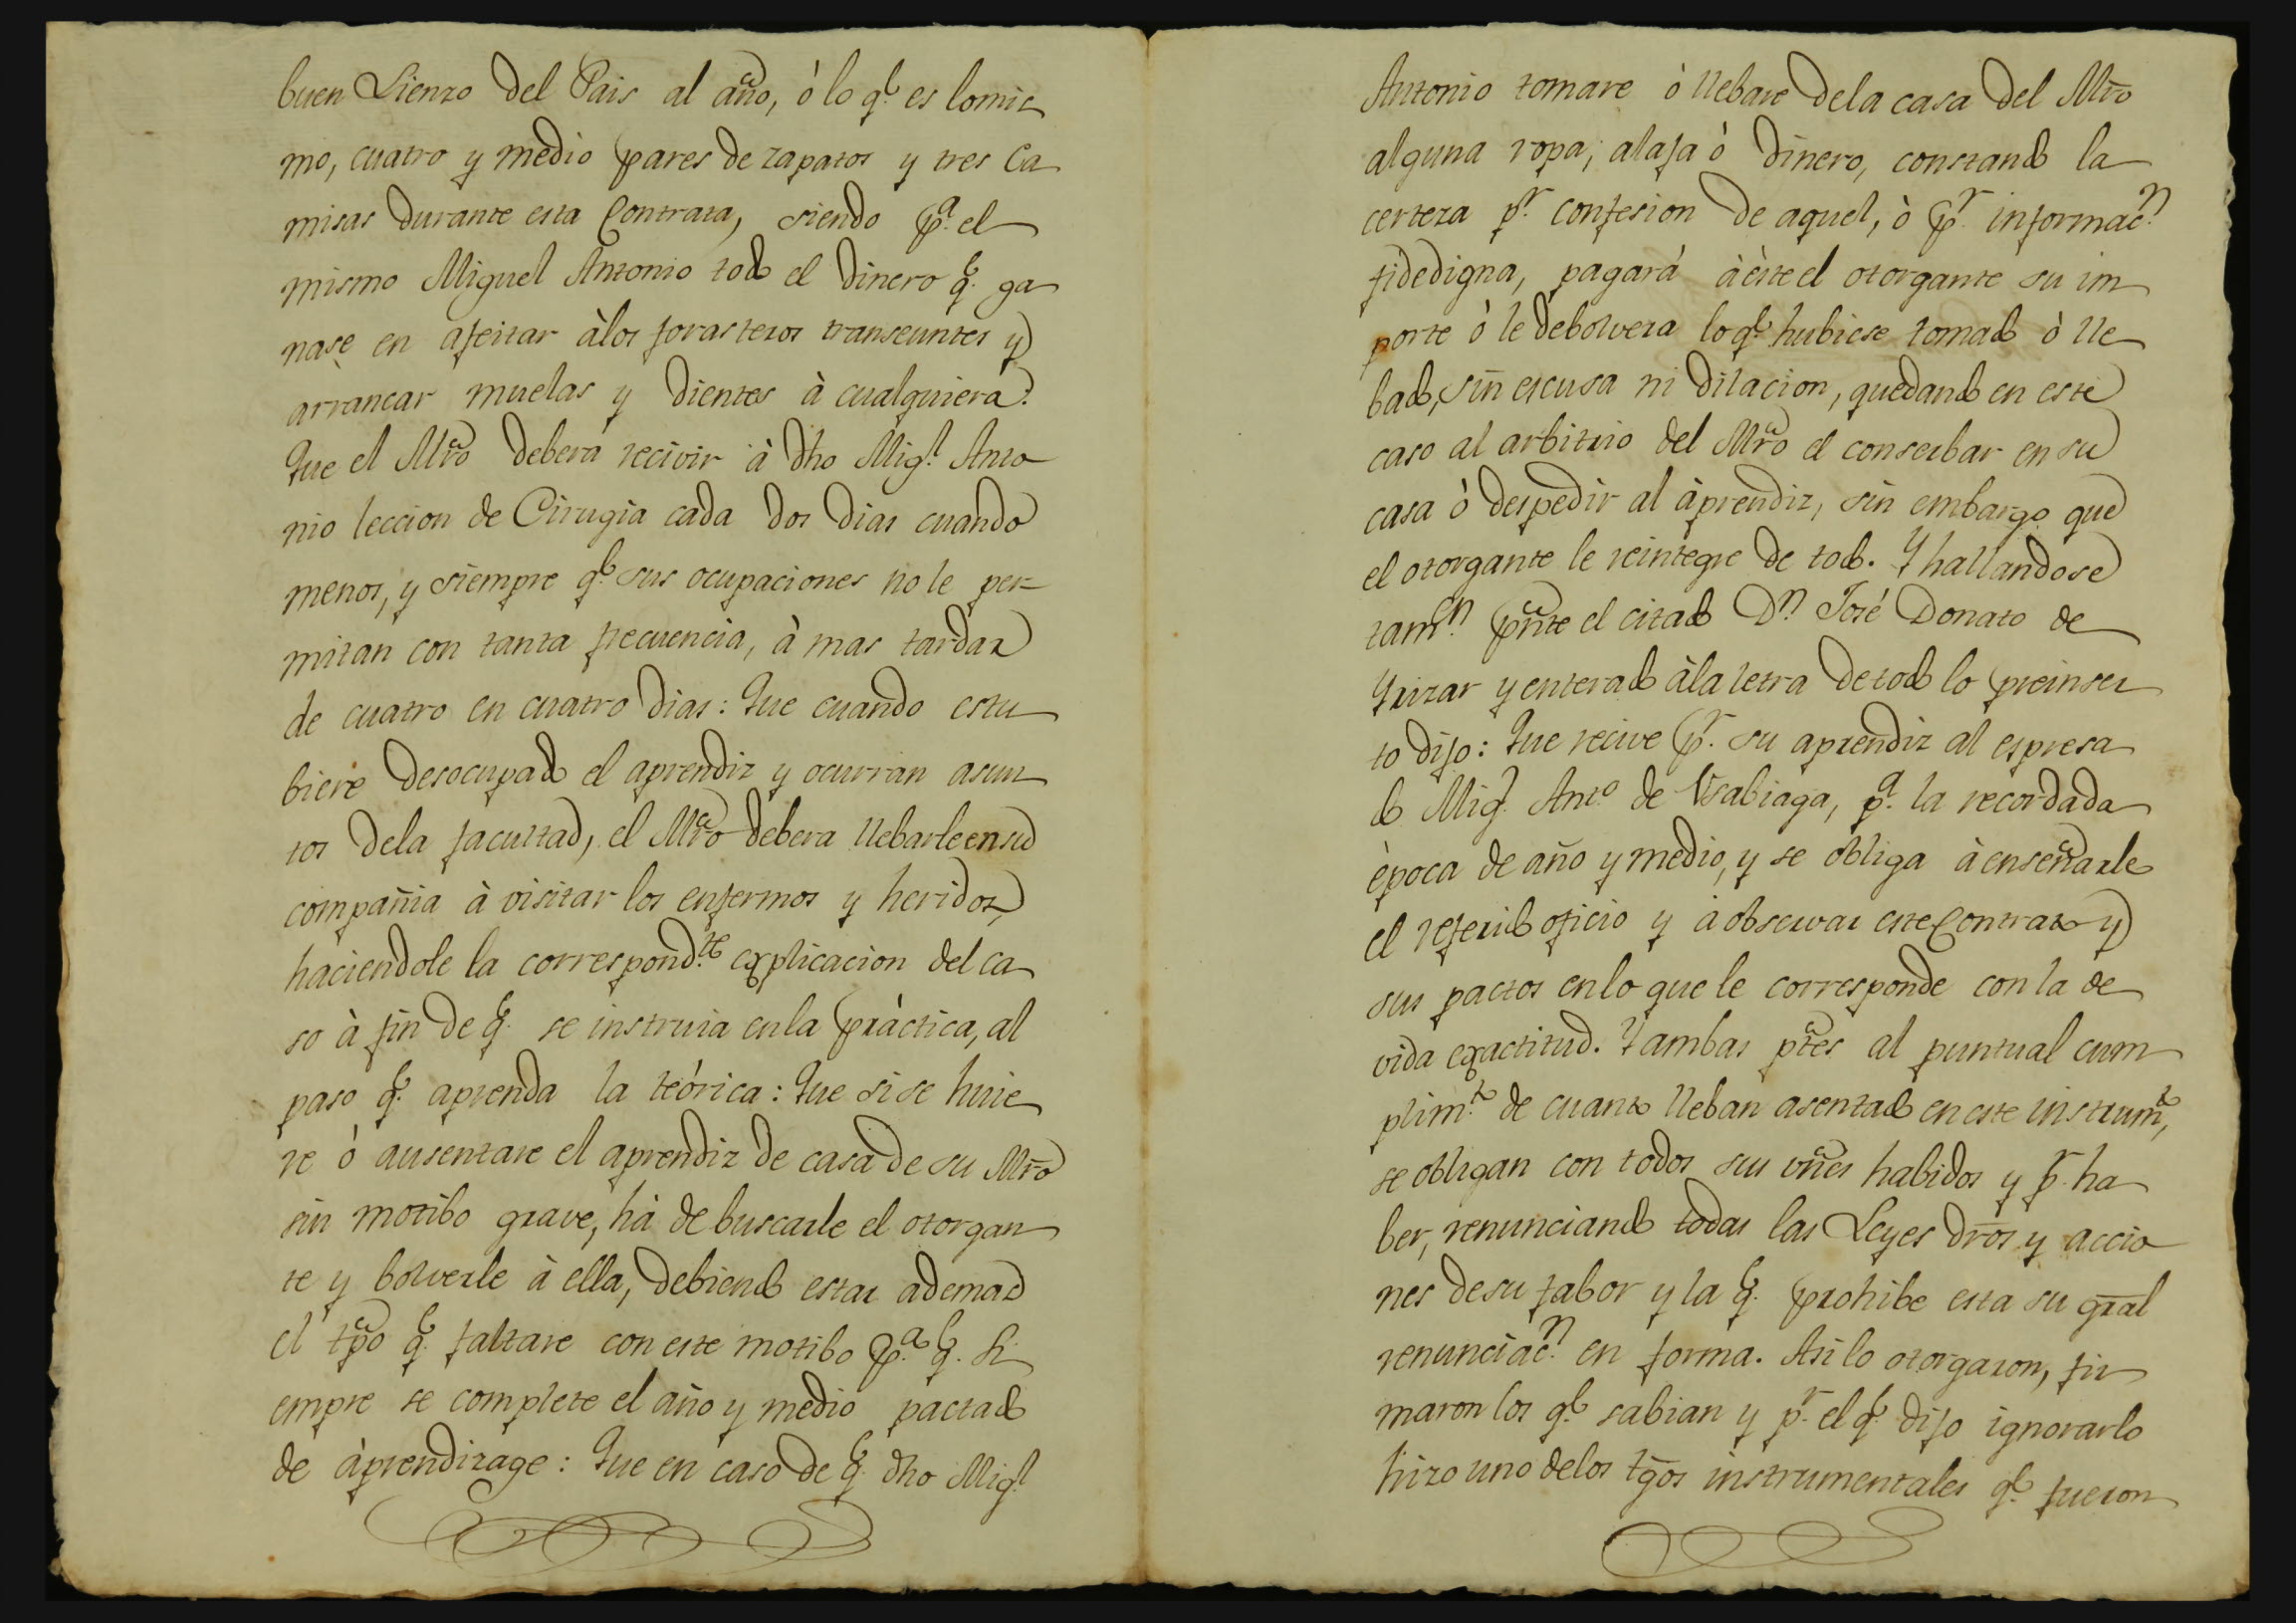 buen Lienzo del Pais al año, ò lo q.e es lomis
mo, cuatro y medio pares de zapatos y tres Ca
misas durante esta Contrata, siendo p.a el
mismo Miguel Antonio todo el dinero q.e ga
nase en afeitar àlos forasteros transeuntes y
arrancar muelas y dientes à cualquiera.
Que el Mrõ deberá recivir à dho Mig.l Anto
nio leccion de Cirugia cada dos dias cuando
menos, y siempre q.e sus ocupaciones no le per
mitan con tanta frecuencia, à mas tardar
de cuatro en cuatro dias: Que cuando estu
biere desocupado el aprendiz y ocurran asun
tos dela facultad, el Mrõ debera llebarle en su
compañia à visitar los enfermos y heridos,
haciendole la correspond.te explicacion del ca
so à fin de q.e se instruia enla práctica, al
paso q.e aprenda la teórica: Que si se huie
re ó ausentare el aprendiz de casa de su Mrõ
sin motibo grave, há de buscarle el otorgan
te y bolverle à ella, debiendo estar ademas
el tpõ q.e faltare con este motibo p.a q.e si
empre se complete el año y medio pactado
de àprendizage: Que en caso de q.e dho Mig.l
Antonio tomare ò llebare dela casa del Mrõ
alguna ropa, alaja ò dinero, constando la
certeza p.r confesion de aquel, ò p.r informac.n
fidedigna, pagará à èste el otorgante su im
porte ò le debolvera lo q.e hubiese tomado ò lle
bado, sin escusa ni dilacion, quedando en este
caso al arbitrio del Mrõ el conserbar en su
casa ò despedir al àprendiz, sin embargo que
el otorgante le reintegre de todo. Y hallandose
tamb.n pñte el citado D.n José Donato de
Yrizar y enterado àla letra de todo lo preinser
to dijo: Que recive p.r su aprendiz al espresa
do Mig.l Ant.o de Usabiaga, p.a la recordada
època de año y medio, y se obliga à enseñarle
el referido oficio y à observar este Contrato y
sus pactos enlo que le corresponde con la de
vida exactitud. Y ambas ptẽs al puntual cum
plim.to de cuanto lleban asentado en este instrum.to,
se obligan con todos sus vñes habidos y p.r ha
ber, renunciando todas las Leyes drõs y accio
nes desu fabor y la q.e prohibe esta su grãl
renunciac.n en forma. Asi lo otorgaron, fir
maron los q.e sabian y p.r el q.e dijo ignorarlo
hizo uno delos tgõs instrumentales q.e fueron